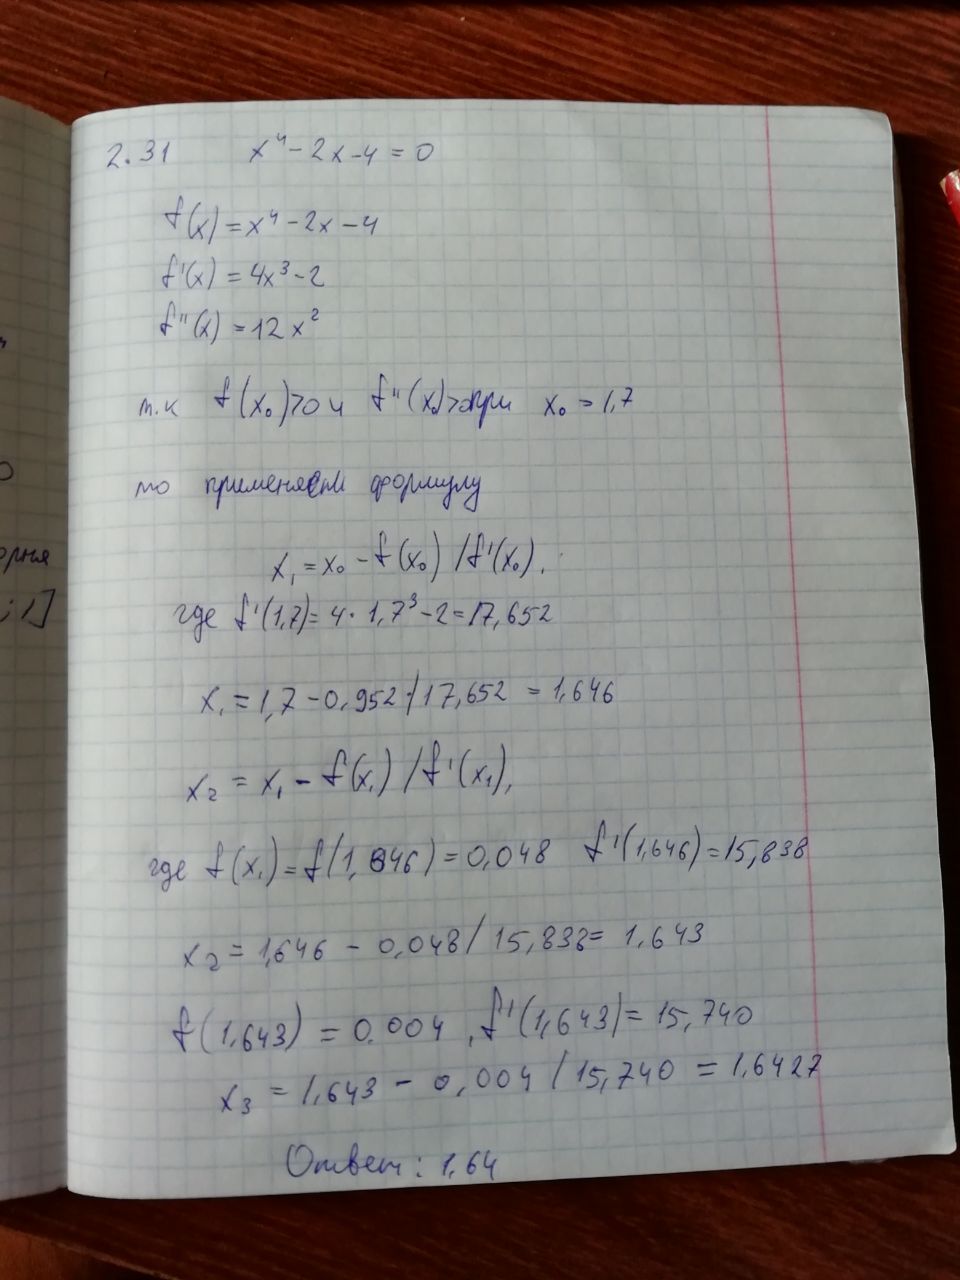 2.31 x⁴ - 2x - 4 = 0
f(x) = x⁴ - 2x - 4
f'(x) = 4x³ - 2
f''(x) = 12x²
т.к f(x₀)>0 и f''(x₀)>0 при x₀ = 1,7
то применяем формулу
x₁ = x₀ - f(x₀) / f'(x₀),
где f'(1,7) = 4 · 1,7³ - 2 = 17,652
x₁ = 1,7 - 0,952 / 17,652 = 1,646
x₂ = x₁ - f(x₁) / f'(x₁),
где f(x₁) = f(1,646) = 0,048 f'(1,646) = 15,838
x₂ = 1,646 - 0,048 / 15,838 = 1,643
f(1,643) = 0.004, f'(1,643) = 15,740
x₃ = 1,643 - 0,004 / 15,740 = 1,6427
Ответ: 1,64
орня
; 1]